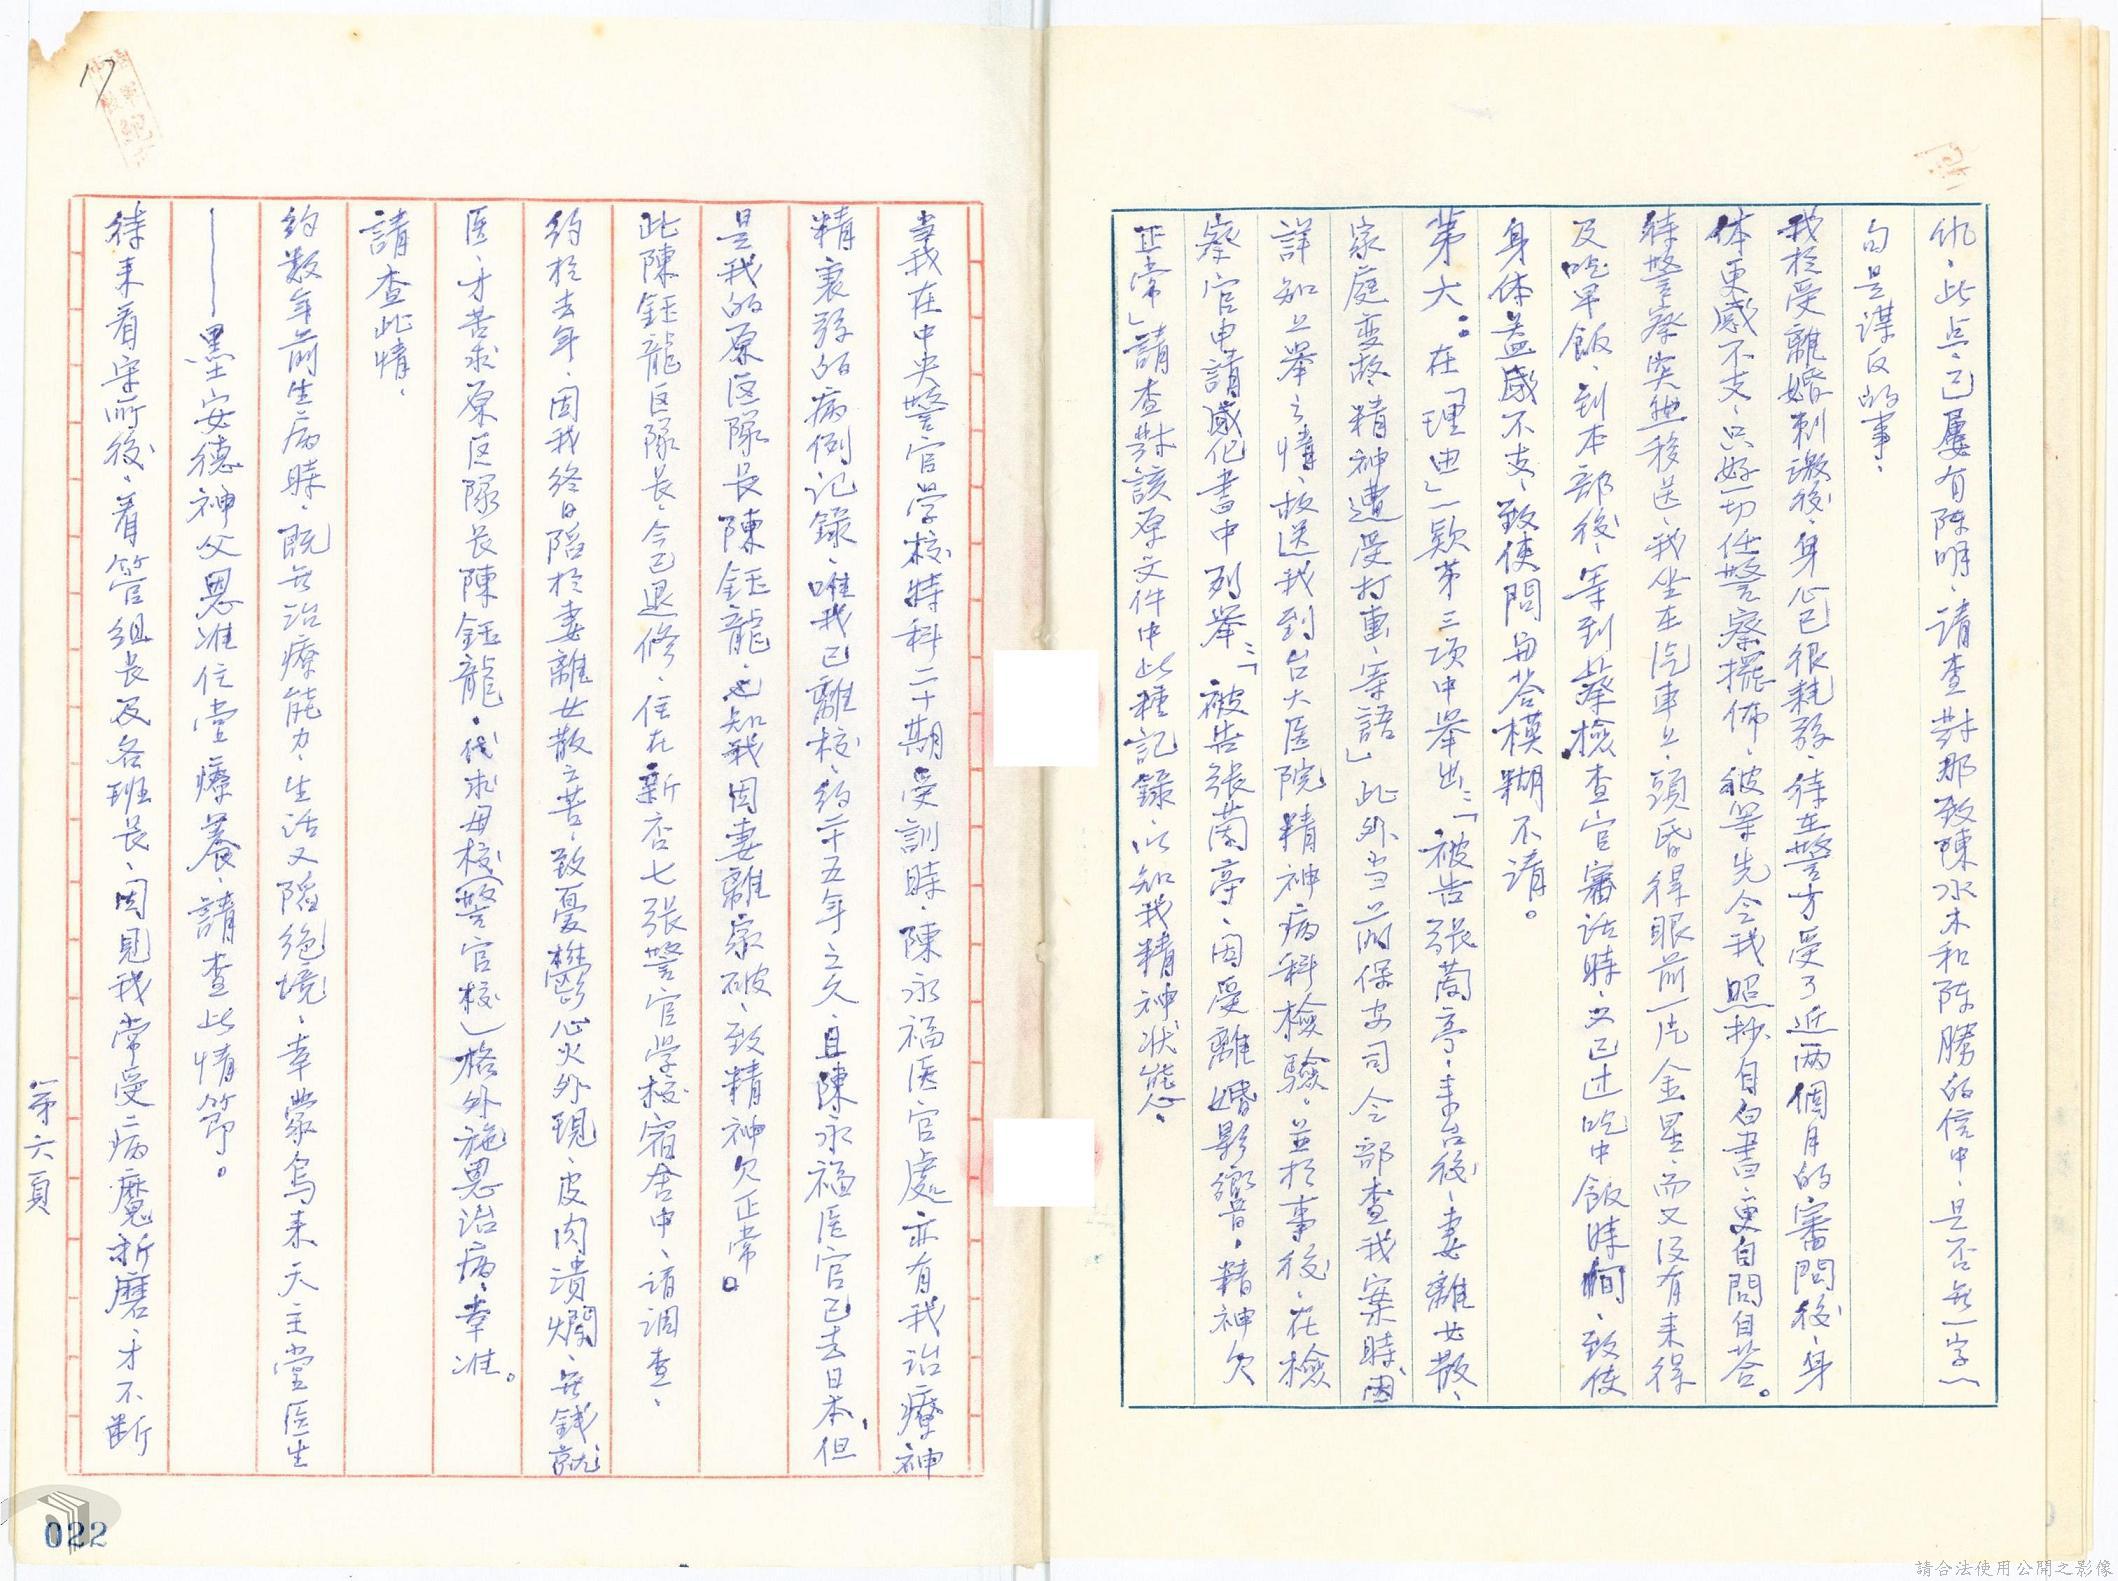 仇、此点、已屢有陈明、请查對那致陳水木和陈勝的信中、是否無一字一
句是謀反的事、
我於受離婚刺激後、身心已很耗弱、待在警方受了近两個月的審問後、身
体更感不支、只好一切任警察擺佈、被畢先令我照抄自白書、更自問自答。
待警察突然移送、我坐在汽車上、頭昏得眼前一片金星、而又没有来得
及吃早飯、到本部後、等到蔡檢查官審話時、又已过吃中飯時间、致使
身体益感不支、致使問与答模糊不清。
第六：在「理由」一欵第三项中举出：「被告張蘭亭、来台後、妻離女散、
家庭变故、精神遭受打重、等語」此外当前保安司令部查我案時、因
詳知上举之情、故送我到台大医院精神病科檢驗、並於事後、在檢
察官申請感化書中列举：「被告張蘭亭、因受離婚影響、精神欠
正常」請查對該原文件中此種記錄、以知我精神状態、
當我在中央警官学校特科二十期受訓時、陳永福医官處亦有我治療神
精衰弱的病例记錄、唯我已離校、约廿五年之久、且陳永福医官已去日本、但
是我的原区隊长陳鈺龍、也知我因妻離家破、致精神欠正常。
此陳鈺龍区隊长、今已退修、住在新店七张警官学校宿舍中、请调查、
约於去年、因我終日陷於妻離女散之苦、致憂鬱心火外現、皮肉潰爛、無錢就
医、才苦求原区隊长陳鈺龍、代求母校（警官校）格外施恩治病、幸准。
請查此情、
约数年前生病時、既無治療能力、生活又陷絕境、幸蒙烏来天主堂医生
——墨安德神父恩准住堂療養、請查此情節。
待来看守所後、看管组长及各班长、因見我常受病魔折磨、才不断
第六頁
17
022
請合法使用公開之影像